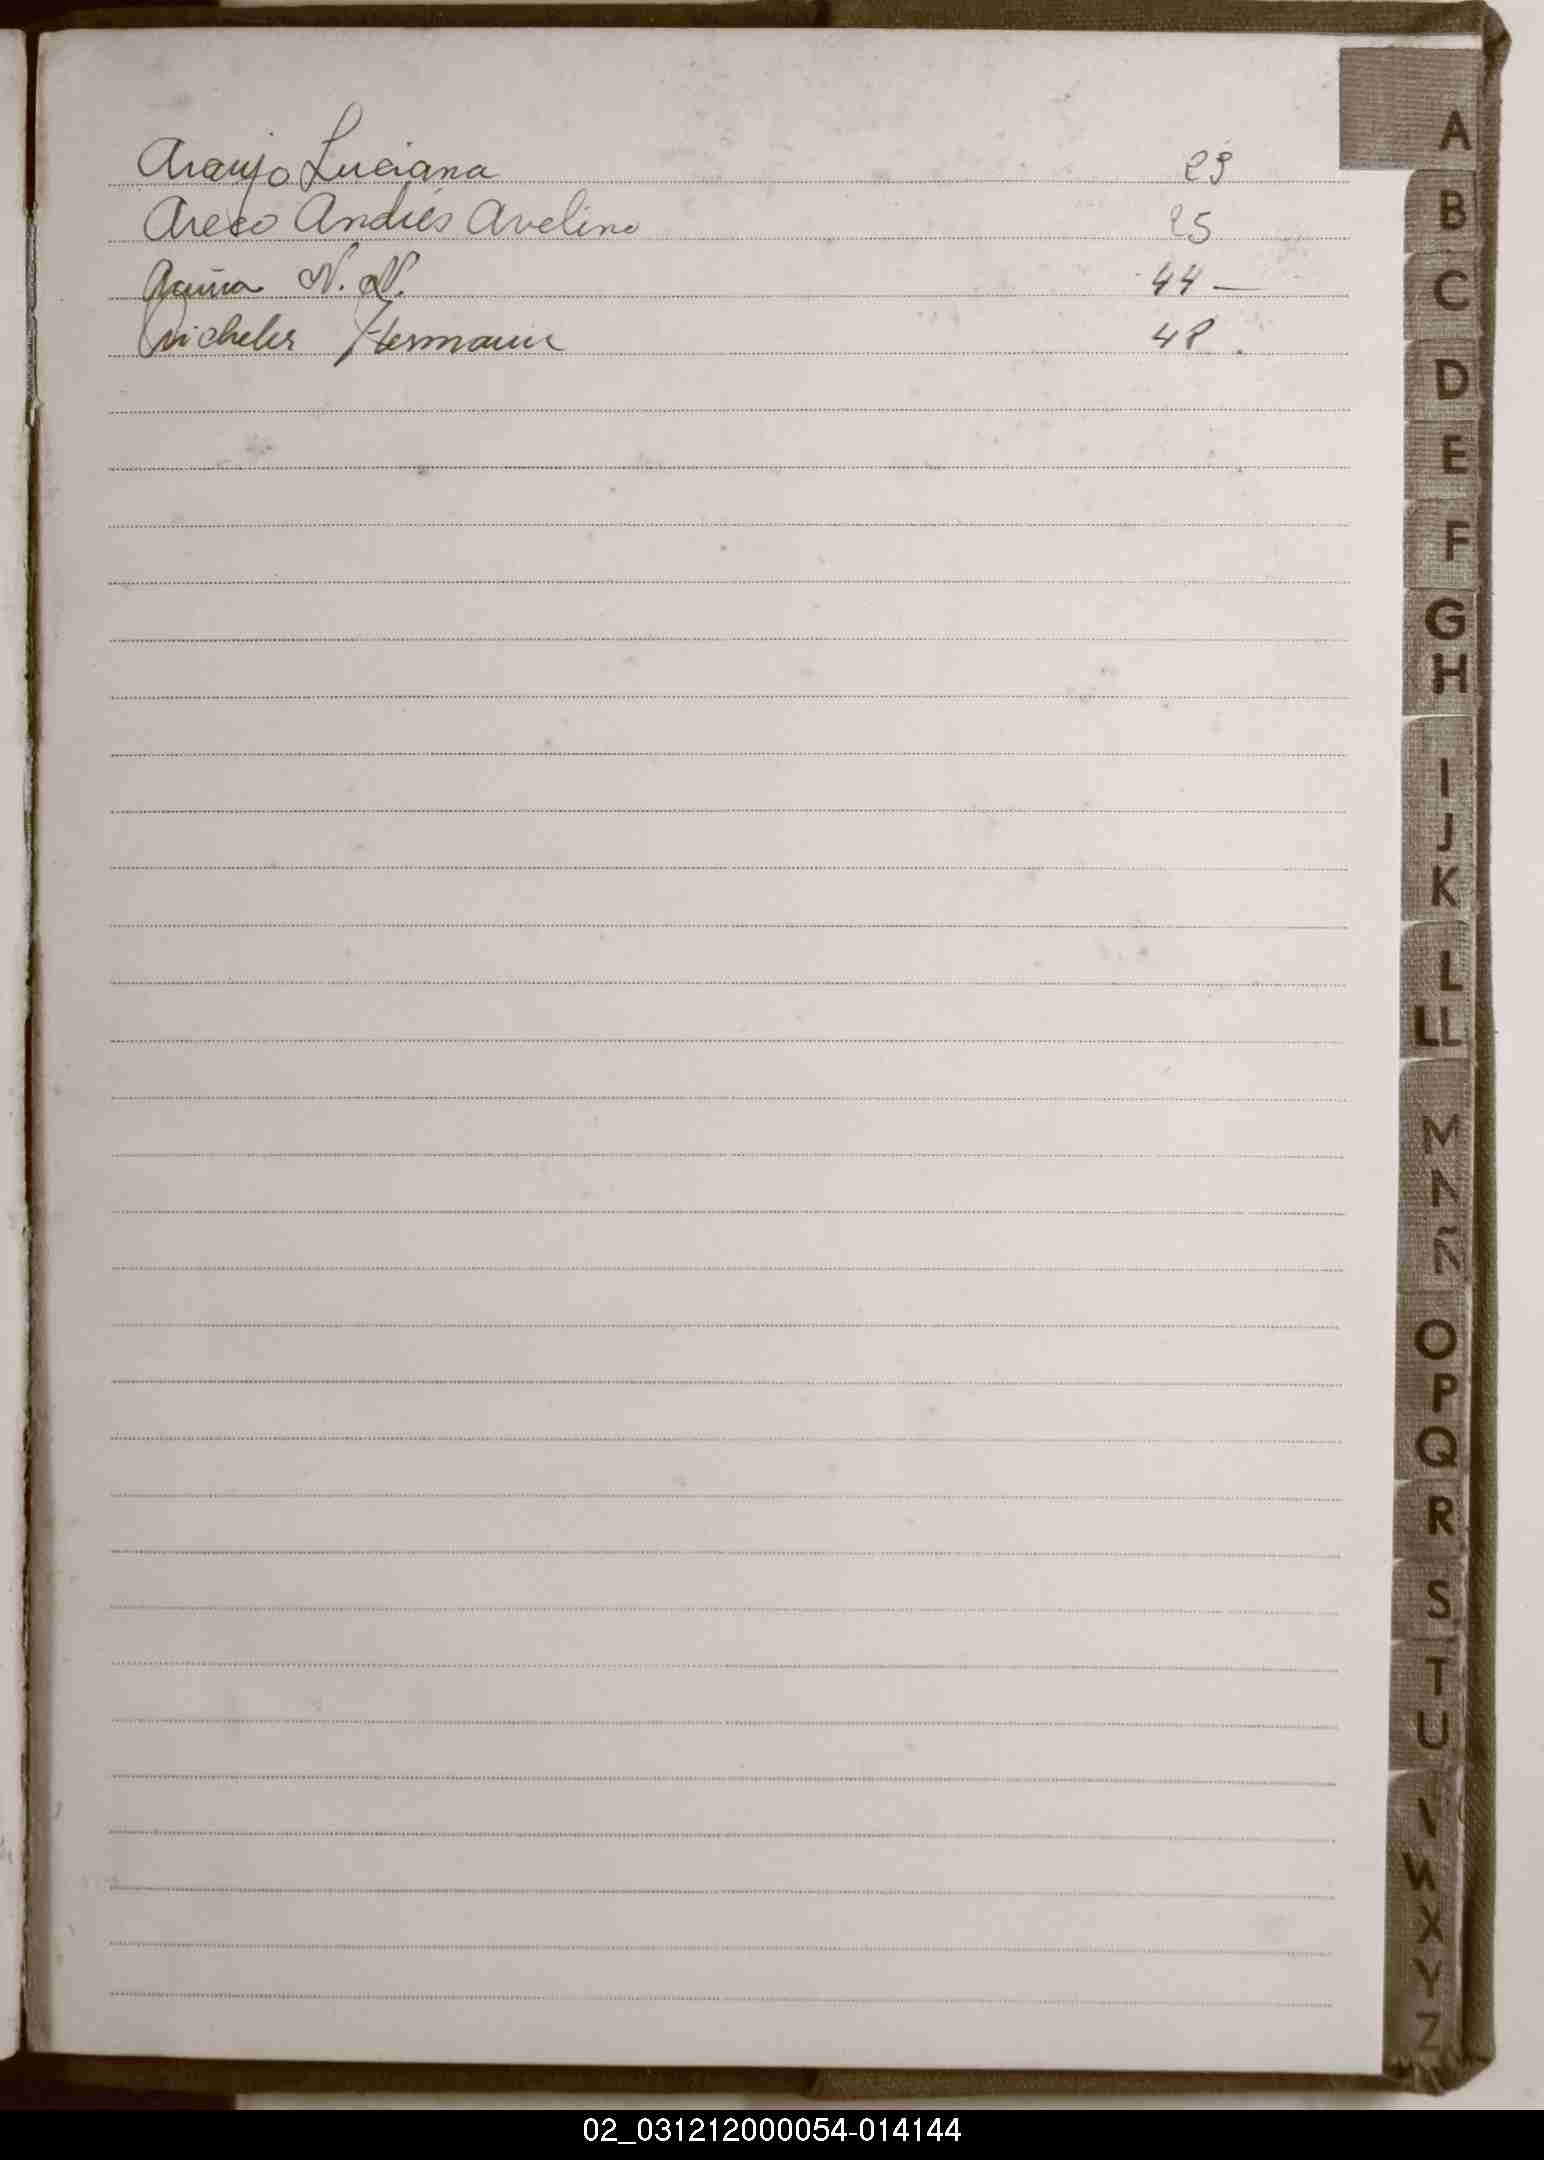 Araujo Luciana 29
Areco Andrés Avelino 25
Acuña N. N. 44 —
Hermann 48.
A
B
C
D
E
F
G
H
I
J
K
L
LL
M
N
Ñ
O
P
Q
R
S
T
U
V
W
X
Y
Z
02_031212000054-014144